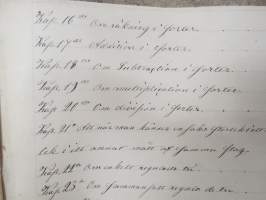 Kap. 16de Om räkning i sorter
Kap. 17de Addition i sorter
Kap. 18de Om Subtraction i sorter
Kap. 19de Om multiplication i sorter
Kap. 20de Om division i sorter
Kap. 21a Att när man känner en saks storlek i ett
lek i ett annat mått af samma slag
Kap. 22a Om enkelt regula de tri
Kap. 23de Om Sammansatt regula de tri